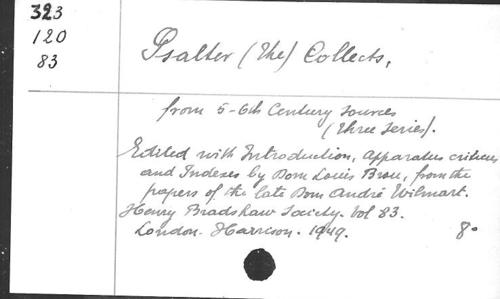 323
120
83
Psalter (The) Collects,
from 5-6th Century sources
(three series).
Edited with Introduction, Apparatus criticus
and Indexes by Dom Louis Brou, from the
papers of the late Dom André Wilmart.
Henry Bradshaw Society. Vol 83.
London. Harrison. 1949. 8o